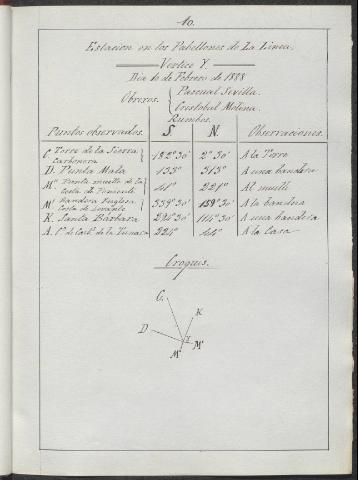 10.
Estacion en los Pabellones de La Linea.
Vertice Y.
Dia 10 de Febrero de 1888
Obreros. Pascual Sevilla.
Cristobal Molina.
Rumbos.
Puntos observados. S N. Observaciones.
C Torre de la Sierra Carbonera 182º30' 2º30' A la Torre
D. Punta Mala 133º 313º A una bandera
M'' Punta muelle de la costa de 41º 221º Al muelle
M' Bandera Inglesa costa de Levante 339º30' 159º30' A la bandera
K. Santa Bárbara 294º30' 114º30' A una bandera
A. 224º 44º A la Casa
Croquis.
C.
K
D
Y
M''
M'